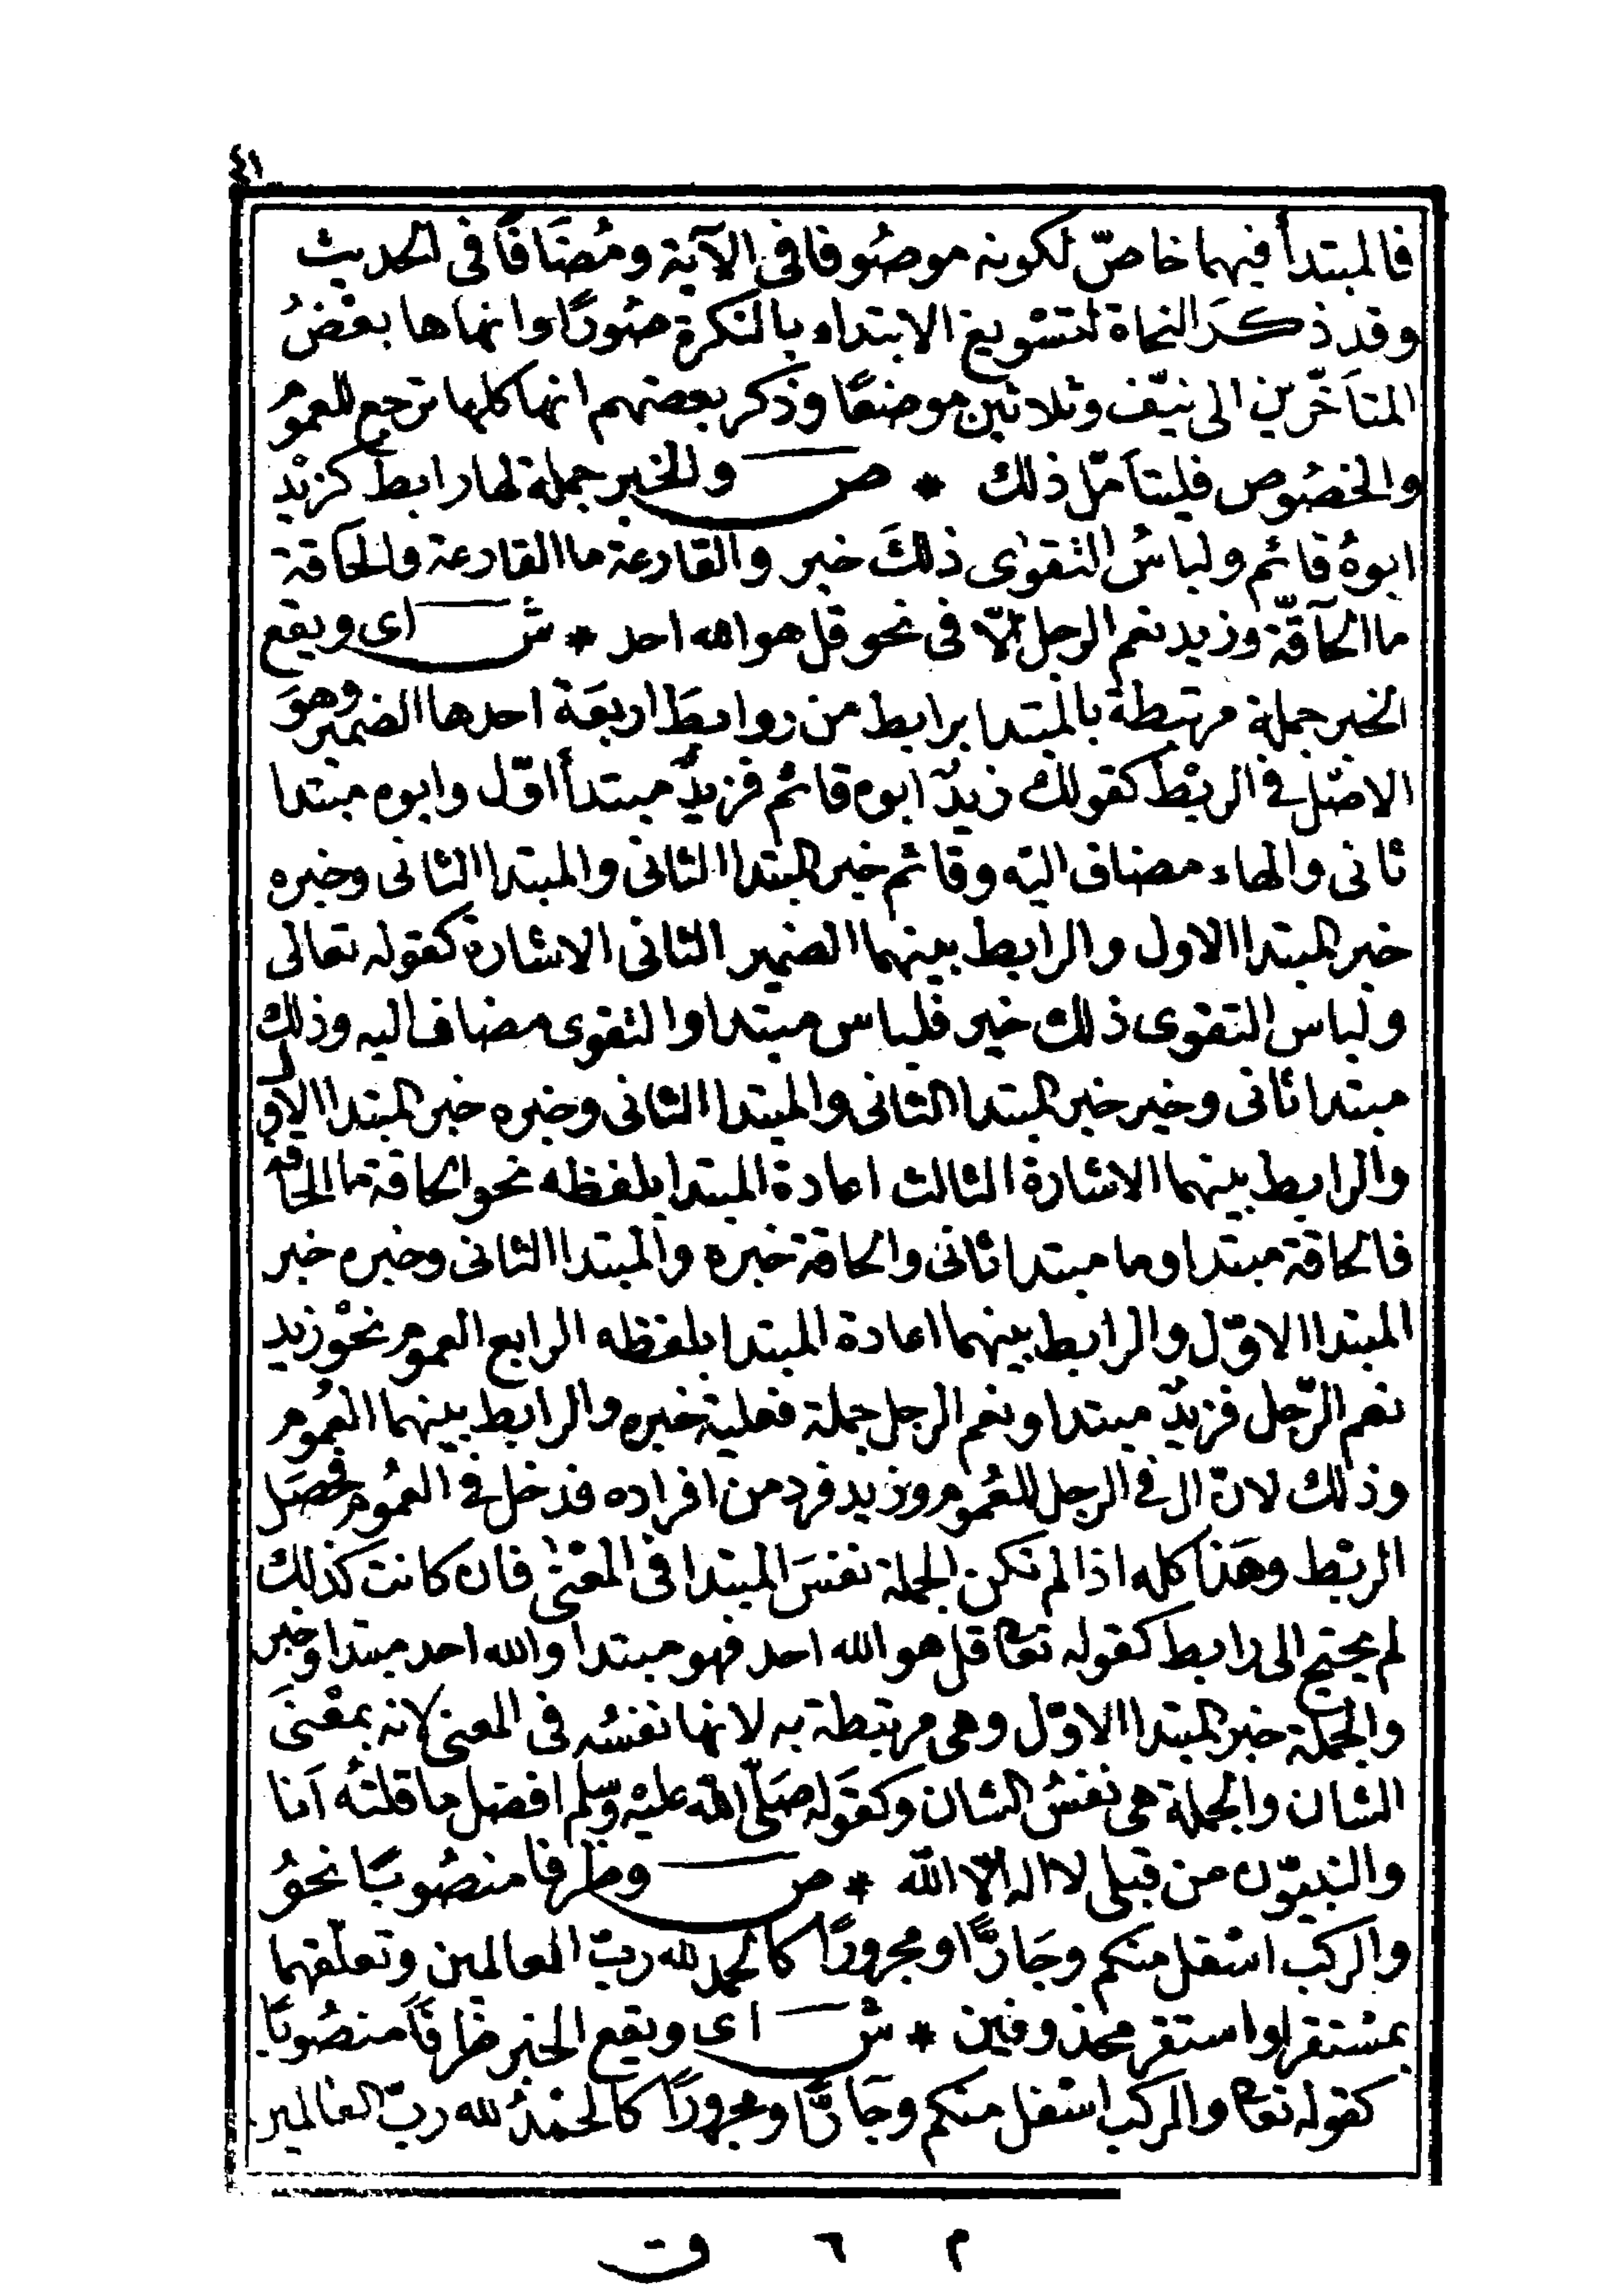 ٤١
فالمبتدأ فيهما خاصّ لكونه موصُوفا في الآية ومُضَافًا في الحديث
وقد ذكَر النحاة لتسْويغ الابتداء بالنكرة صُورًا وانهاها بعْضُ
المتأخّرين الى نيّف وثلاثين موضعًا وذكر بعضهم انها كلها ترجع للعمومُ
والخصُوص فليتأمّل ذلك * ص والخبر جملة لها رابط كزيْد
ابوهُ قائم ولباسُ التقوٰى ذلكَ خير والقارعة ما القارعة والحاقة
ما الحآقّة وزيد نعم الرجل إلّا في نحو قل هو الله احد * ش اى ويقع
الخبر جملة مرتبطة بالمبتدا برابط من روابطَ اربعَة احدها الضمير وهوَ
الاصْل في الربْط كقولك زيدٌ ابوه قائم فزيدٌ مبتدأ اوّل وابوه مبتدا
ثانى والهاء مضاف اليْه وقائم خبر المبتدا الثانى والمبتدا الثانى وخبره
خبر المبتدا الاول والرابط بينهما الضمير الثانى الاشارة كقوله تعالى
ولباس التقوى ذلك خير فلباس مبتدا والتقوى مضاف اليه وذلك
مبتدا ثانى وخير خبر المبتدا الثانى والمبتدا الثانى وخبره خبر المبتدا الاول
والرابط بينهما الاشارة الثالث اعادة المبتدا بلفظه نحو الحاقة ما الحاقة
فالحاقة مبتدا وما مبتدا ثانى والحاقة خبره والمبتدا الثانى وخبره خبر
المبتدا الاوّل والرابط بينهما اعادة المبتدا بلفظه الرابع العموم نحْو زيد
نعم الرّجل فزيدٌ مبتدا ونعم الرجل جملة فعلية خبره والرابط بينهما العُموم
وذلك لانّ ال في الرجل للعُموم وزيد فرد من افراده فدخل في العمُوم فحصَل
الربْط وهَذا كله اذا لم تكن الجملة نفسَ المبتدا فى المعْنٰى فان كانت كذلك
لم يحتج الى رابط كقوله تعا قل هو الله احد فهو مبتدا والله احد مبتدا وخبر
والجملة خبر المبتدا الاوّل وهى مرتبطة به لانها نفسُه فى المعنى لانه بمعْنىَ
الشان والجملة هى نفسُ الشان وكقوَله صَلّى الله عليْه وسلم افضل ما قلتُه اَنا
والنبيّون من قبلى لا اله الّا الله * ص وظرفا منصُوبًا نحوُ
والركب اسْفل منكم وجَارًّا ومجرورًا كالحمد لله ربّ العالمين وتعلّقهما
بمسْتقر او استقر محذوفين * ش اى ويقع الخبر ظرفًا منصُوبًا
كقوله تعا والركب اسْفل منكم وجَارًّا ومجرورًا كالحمْدُ لله ربّ العالمين
م ٦ ق